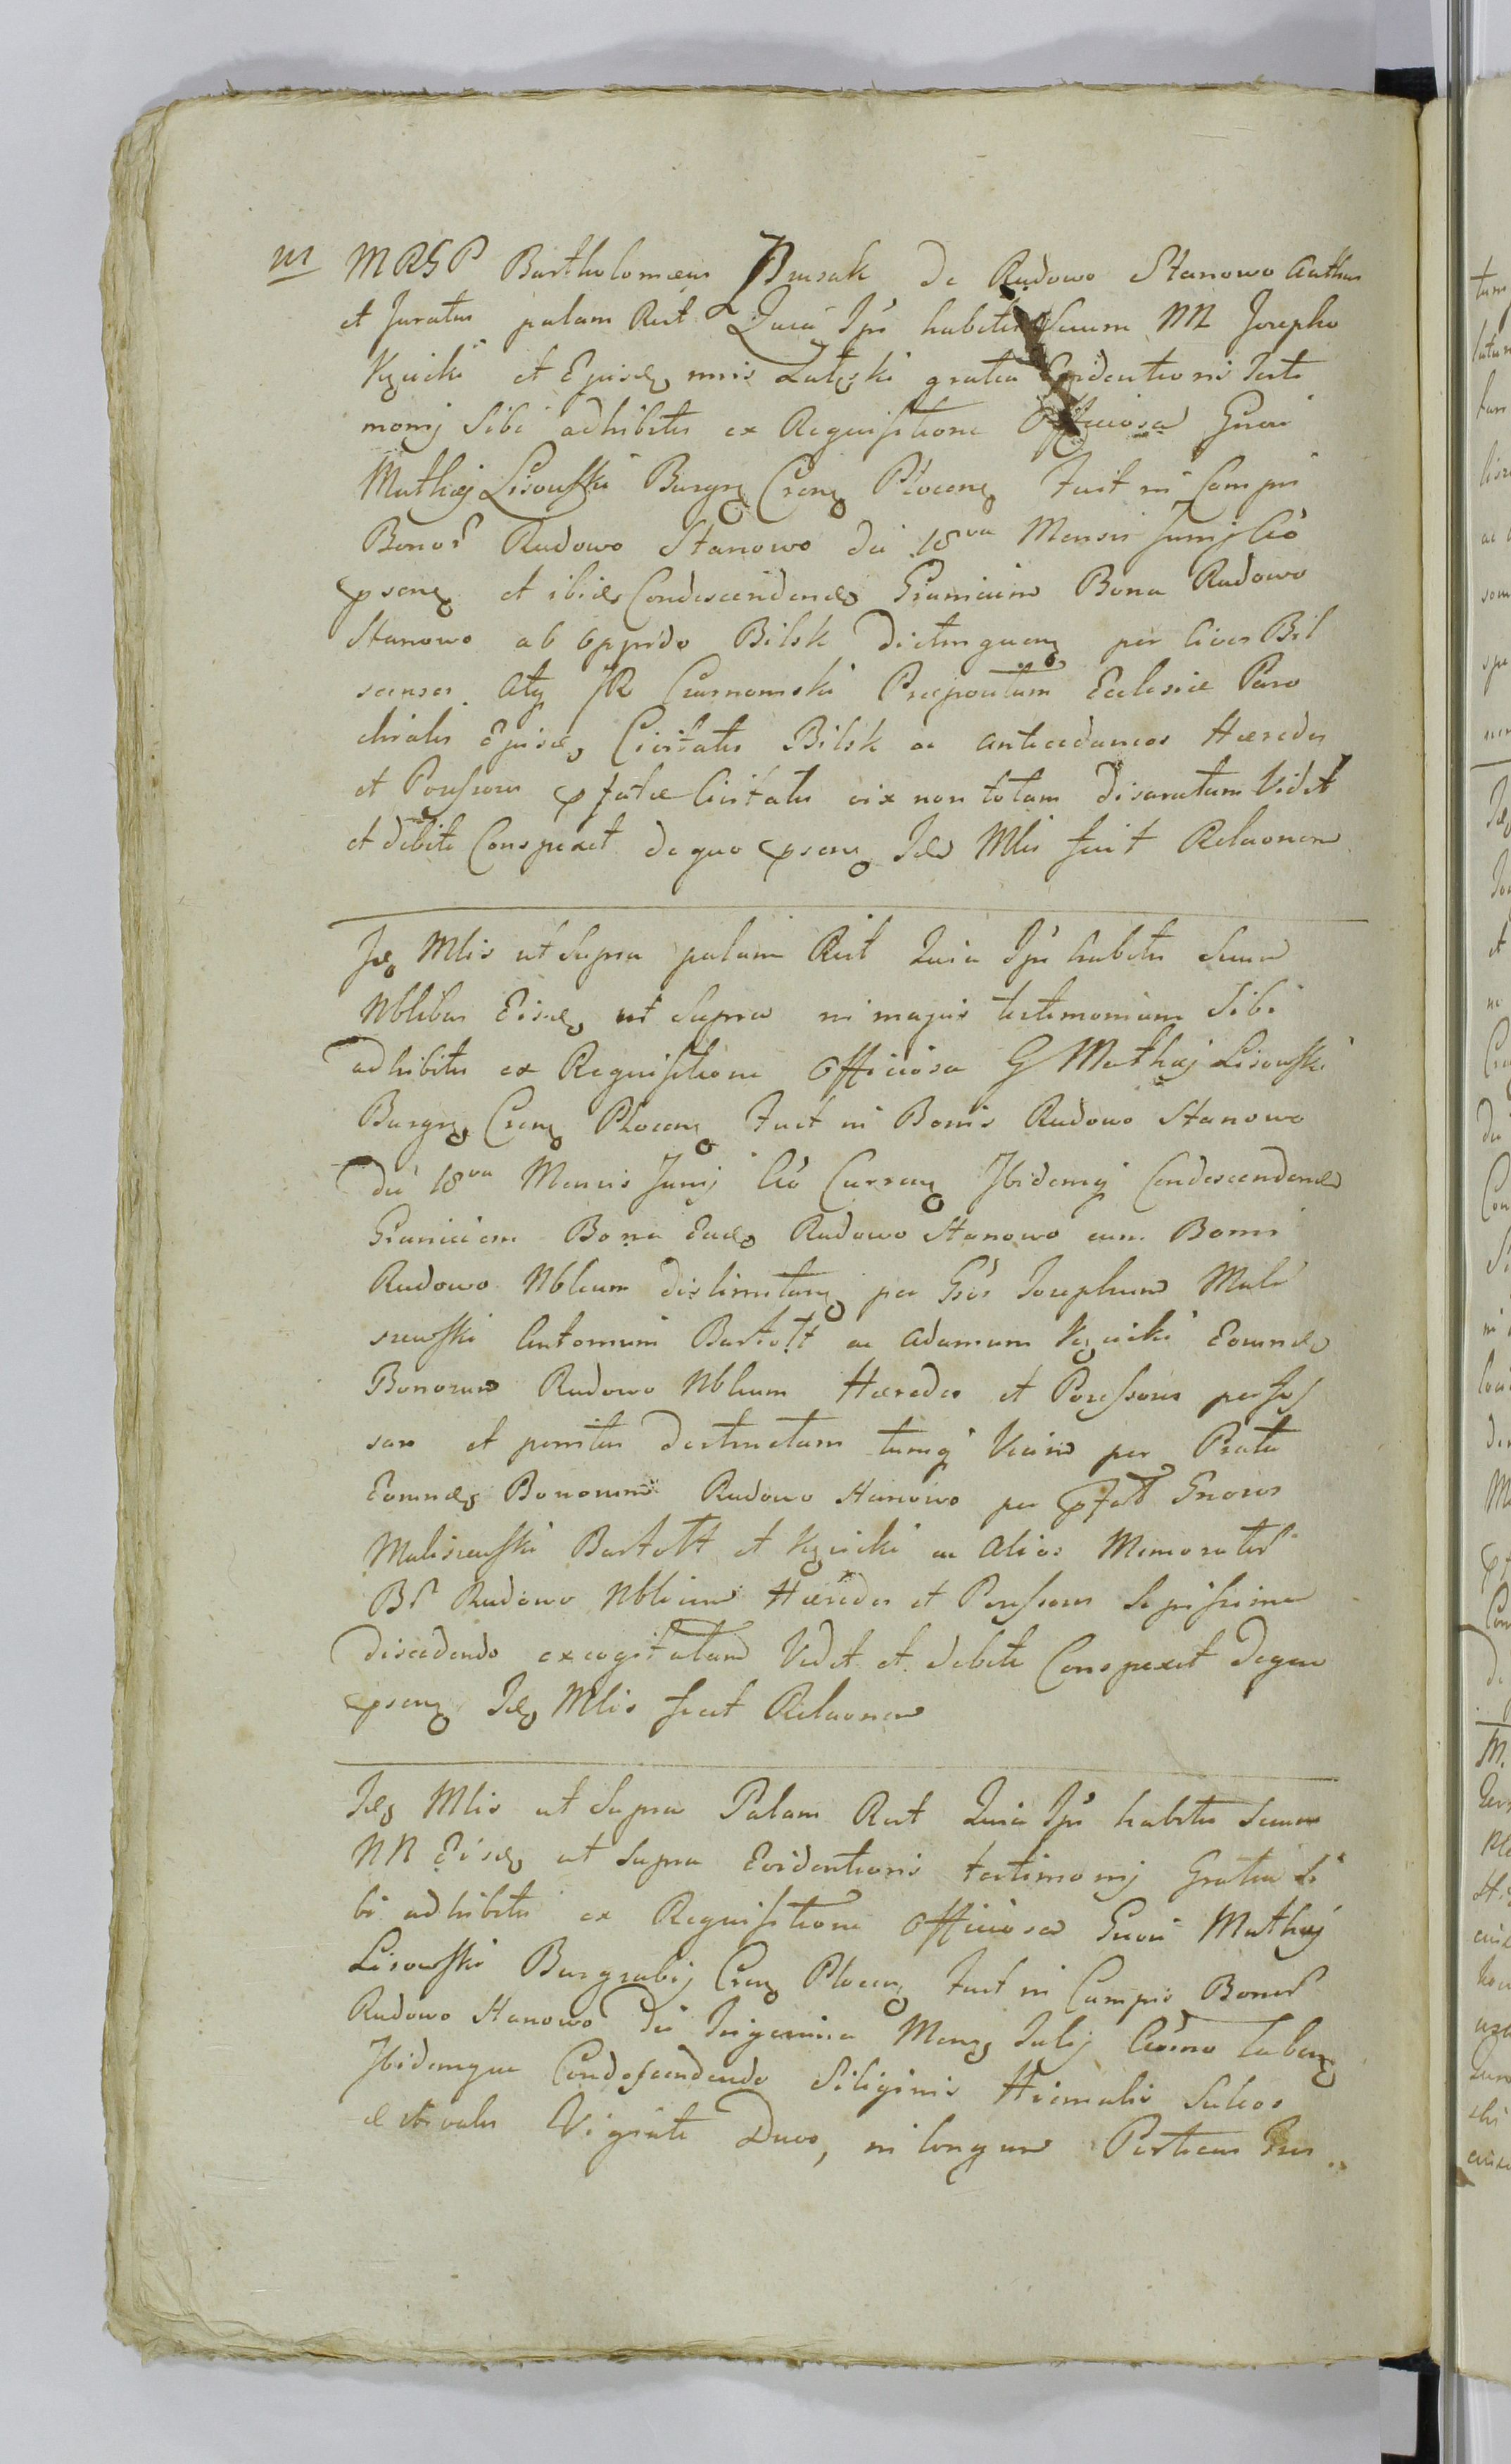 m MRGP Bartholomeus Brusak de Rudowo Stanowo Authen
et Juratus palam Rert Quia Ips habitis Secum NN Josepho
Kęsicki et Ejusdę nnis Zaleski gratia Evidentioris Testi
monij Sibi adhibitis ex Requisitione Officiosa Gnosi
Mathęj Lisowski Burgrę Crenę Płocenę Fuit in Campis
Bonor Rudowo Stanowo die 18va Mensis Junij Ao
pręsenę et ibidę Condescendendo Graniciem Bona Rudowo
Stanowo ab oppido Bilsk distinguenę per Cives Bil
scenses Atq JR Czarnomski Præpositum Ecclesiæ Paro
chialis Ejusdę Civitatis Bilsk ac antecedaneos Hæredes
et Possessores pfatæ Civitatis vix non totam disaratam Vidit
et debite Conspexit de quo psenę Idę Mlis fecit Relaonem
Idę Mlis ut Supra palam Rert Quia Ips habitis Secum
Nblibus Eisdę ut Supra in majus testimonium Sibi
adhibitis ex Requisitione Officiosa G Mathęj Lisowski
Burgrę Crenę Płocenę Fuit in Bonis Rudowo Stanowo
die 18va Mensis Junij Ao Currenę Ibidemq Condescendendo
Graniciem Bona Eadę Rudowo Stanowo cum Bonis
Rudowo Nblium dislimitanę per Gsos Josephum Mali
szewski Antonium Bartołt ac Adamum Kęsicki Eorundę
Bonorum Rudowo Nblium Hæredes et Possessores perfos
sam et penitus destructam tumq Viam per Prata
Eorundę Bonorum Rudowo Stanowo per pfat Gnosos
Maliszewski Bartołt et Kęsicki ac Alios Memorator
Br Rudowo Nblium Hæredes et Possessores Sæpissime
discedendo excogitatam Vidit et debite Conspexit de quo
psenę Idę Mlis fecit Relaonem
Idę Mlis ut Supra Palam Rert Quia Ips habitis Secum
NN Eisdę ut Supra Evidentioris testimonij Gratia Si
bi adhibitis ex Requisitione Officiosa Gnosi Mathęj
Lisowski Burgrabij Crenę Płocenę Fuit in Campis Bonor
Rudowo Stanowo die Trigesima Mensę Julij Anno Labenę
Ibidemque Condescendendo Siliginis Hiemalis Sulcos
æstivales Viginti Duos, in longum Perticas Tres